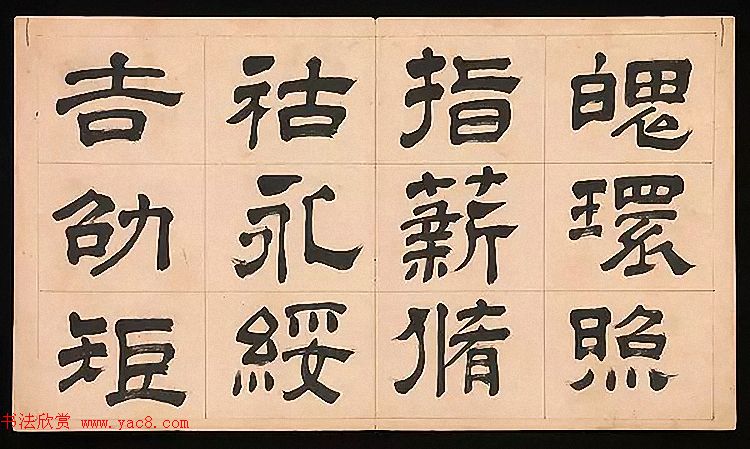 魄環照
指薪脩
祜永綏
吉劭矩
书法欣赏 www.yac8.com